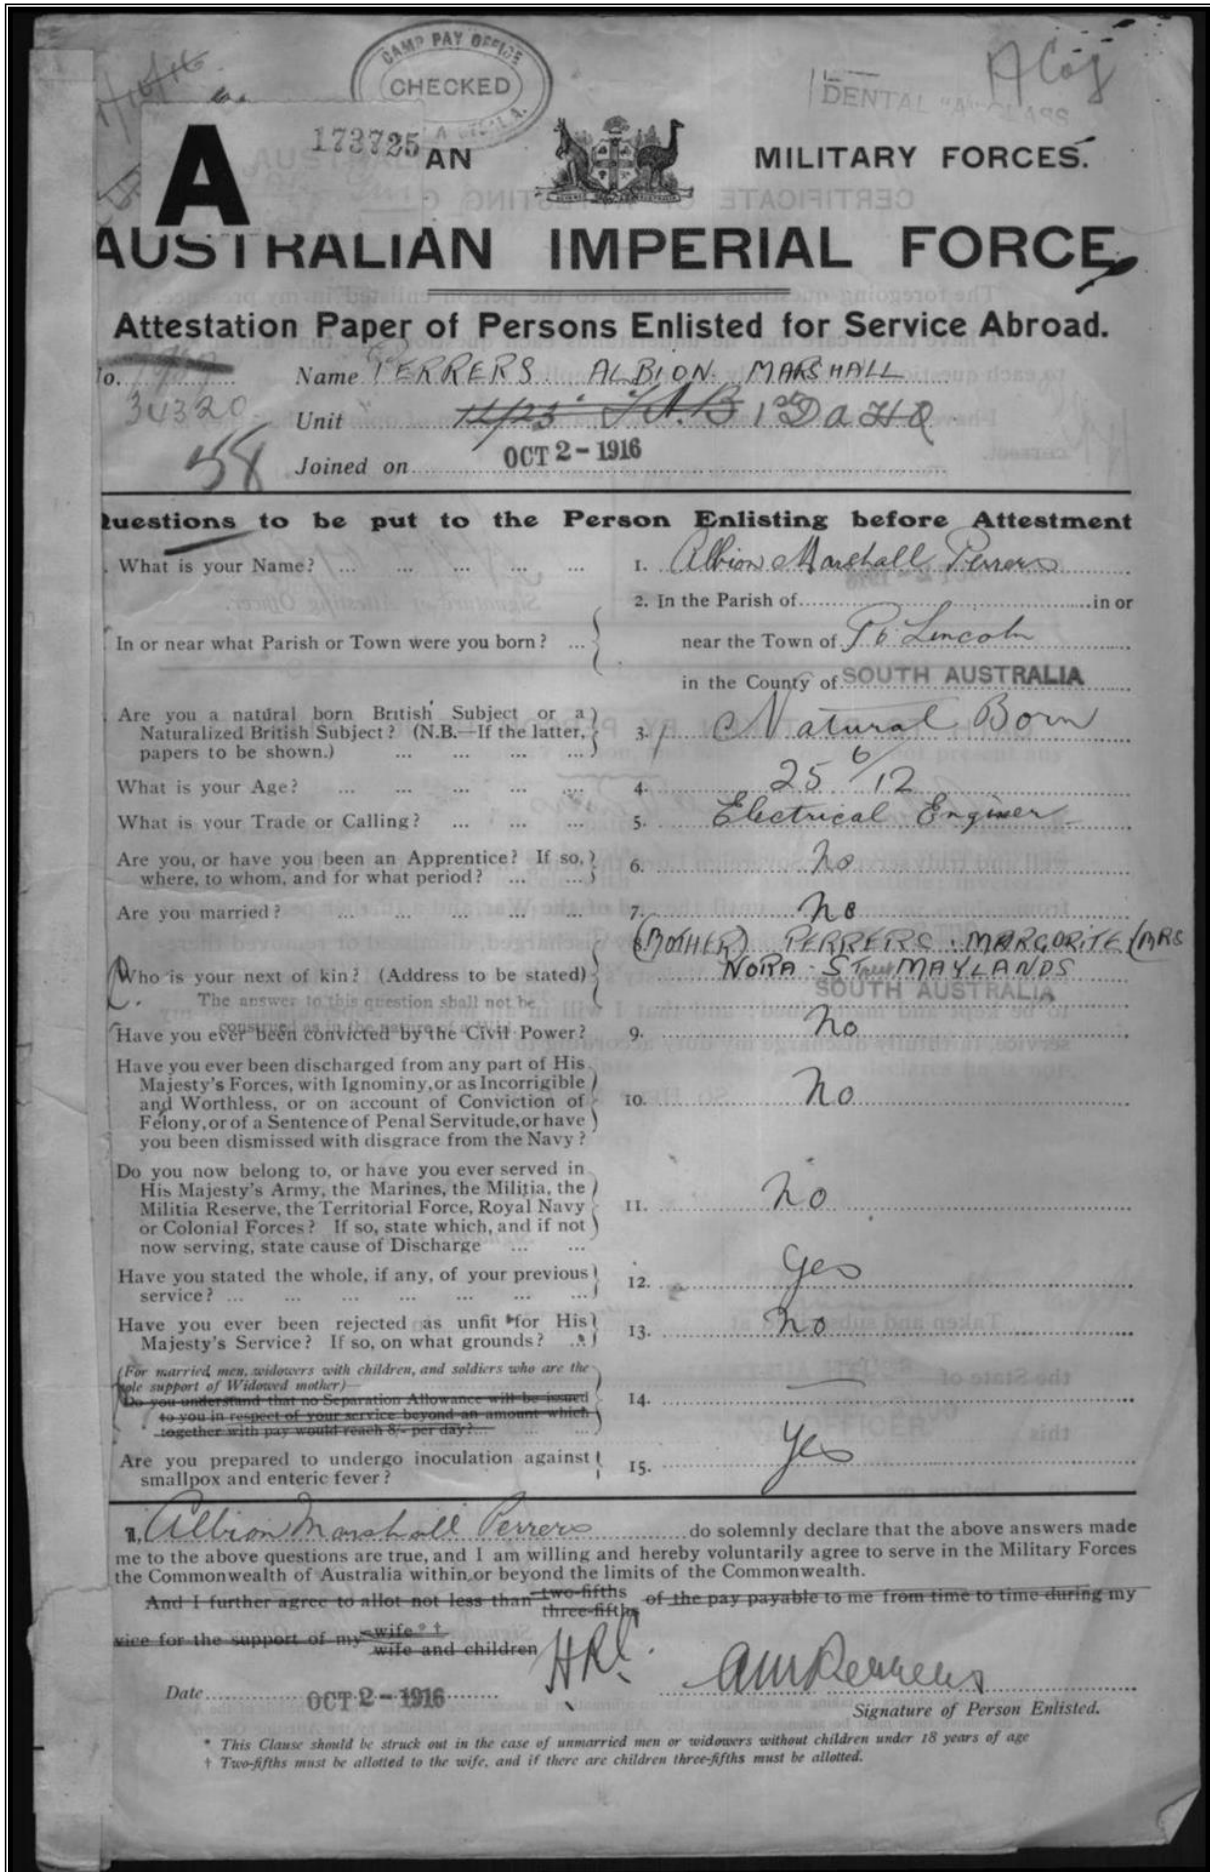 CAMP PAY OFFICE
CHECKED
DENTAL "A" CLASS
A
173725
AN
MILITARY FORCES.
AUSTRALIAN IMPERIAL FORCE
Attestation Paper of Persons Enlisted for Service Abroad.
No.
Name PERRERS ALBION MARSHALL
34320
Unit 11/23 F.A.B 1st D A H Q
58
Joined on OCT 2 - 1916
Questions to be put to the Person Enlisting before Attestment
What is your Name? ... ... ... ... ... 1. Albion Marshall Perrers
2. In the Parish of in or
In or near what Parish or Town were you born? ... near the Town of Pt. Lincoln
in the County of SOUTH AUSTRALIA
Are you a natural born British Subject or a
Naturalized British Subject? (N.B.—If the latter, 3. Natural Born
papers to be shown.) ... ... ... ...
What is your Age? ... ... ... ... ... 4. 25 6/12
What is your Trade or Calling? ... ... ... 5. Electrical Enginer
Are you, or have you been an Apprentice? If so, 6. No
where, to whom, and for what period? ... ...
Are you married? ... ... ... ... ... 7. No
8. (MOTHER) PERRERS. MARGORITE (MRS
Who is your next of kin? (Address to be stated) NORA. Street MAYLANDS
The answer to this question shall not be SOUTH AUSTRALIA
construed as in the nature of a
Have you ever been convicted by the Civil Power? 9. No
Have you ever been discharged from any part of His
Majesty's Forces, with Ignominy, or as Incorrigible
and Worthless, or on account of Conviction of 10. No
Felony, or of a Sentence of Penal Servitude, or have
you been dismissed with disgrace from the Navy?
Do you now belong to, or have you ever served in
His Majesty's Army, the Marines, the Militia, the
Militia Reserve, the Territorial Force, Royal Navy 11. No
or Colonial Forces? If so, state which, and if not
now serving, state cause of Discharge ... ...
Have you stated the whole, if any, of your previous 12. Yes
service? ... ... ... ... ... ...
Have you ever been rejected as unfit for His 13. No
Majesty's Service? If so, on what grounds? ...
(For married men, widowers with children, and soldiers who are the
sole support of Widowed mother)—
Do you understand that no Separation Allowance will be issued 14. —
to you in respect of your service beyond an amount which
together with pay would reach 8/- per day? ...
Are you prepared to undergo inoculation against 15. Yes
smallpox and enteric fever?
I, Albion Marshall Perrers do solemnly declare that the above answers made
me to the above questions are true, and I am willing and hereby voluntarily agree to serve in the Military Forces
the Commonwealth of Australia within or beyond the limits of the Commonwealth.
And I further agree to allot not less than two-fifths three-fifths of the pay payable to me from time to time during my
vice for the support of my wife * † wife and children
HRC. AMPerrers
Date OCT 2 - 1916
Signature of Person Enlisted.
* This Clause should be struck out in the case of unmarried men or widowers without children under 18 years of age
† Two-fifths must be allotted to the wife, and if there are children three-fifths must be allotted.